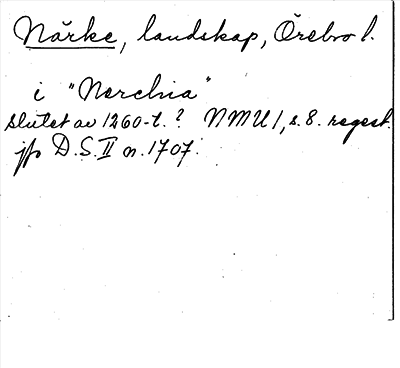 Närke, landskap, Örebro l.
i "Nerchia"
slutet av 1260-t.? NMU 1, s. 8. regest.
jfr D.S. II n. 1707.